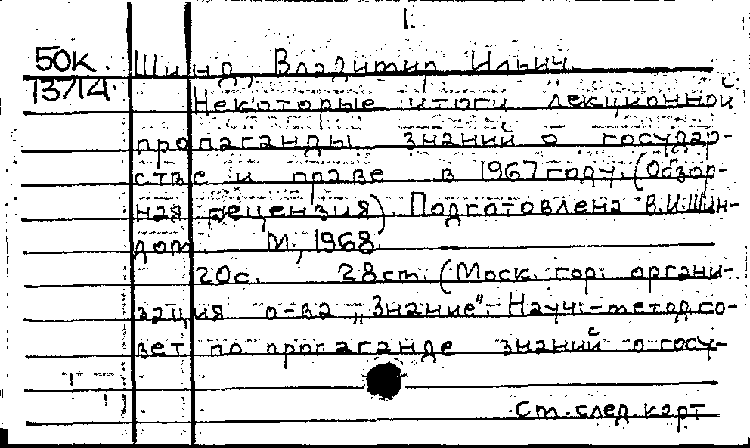 1.
50К. Шинд, Владимир Ильич.
13714. Некоторые итоги лекционной
пропаганды знаний о государ-
стве и праве в 1967 году. (Обзор-
ная рецензия). Подготовлена В.И.Шин-
дом. М., 1968.
20с. 28см. (Моск. гор. органи-
зация о-ва „Знание". Науч.-метод.со-
вет по пропаганде знаний о госу-
см.след.карт